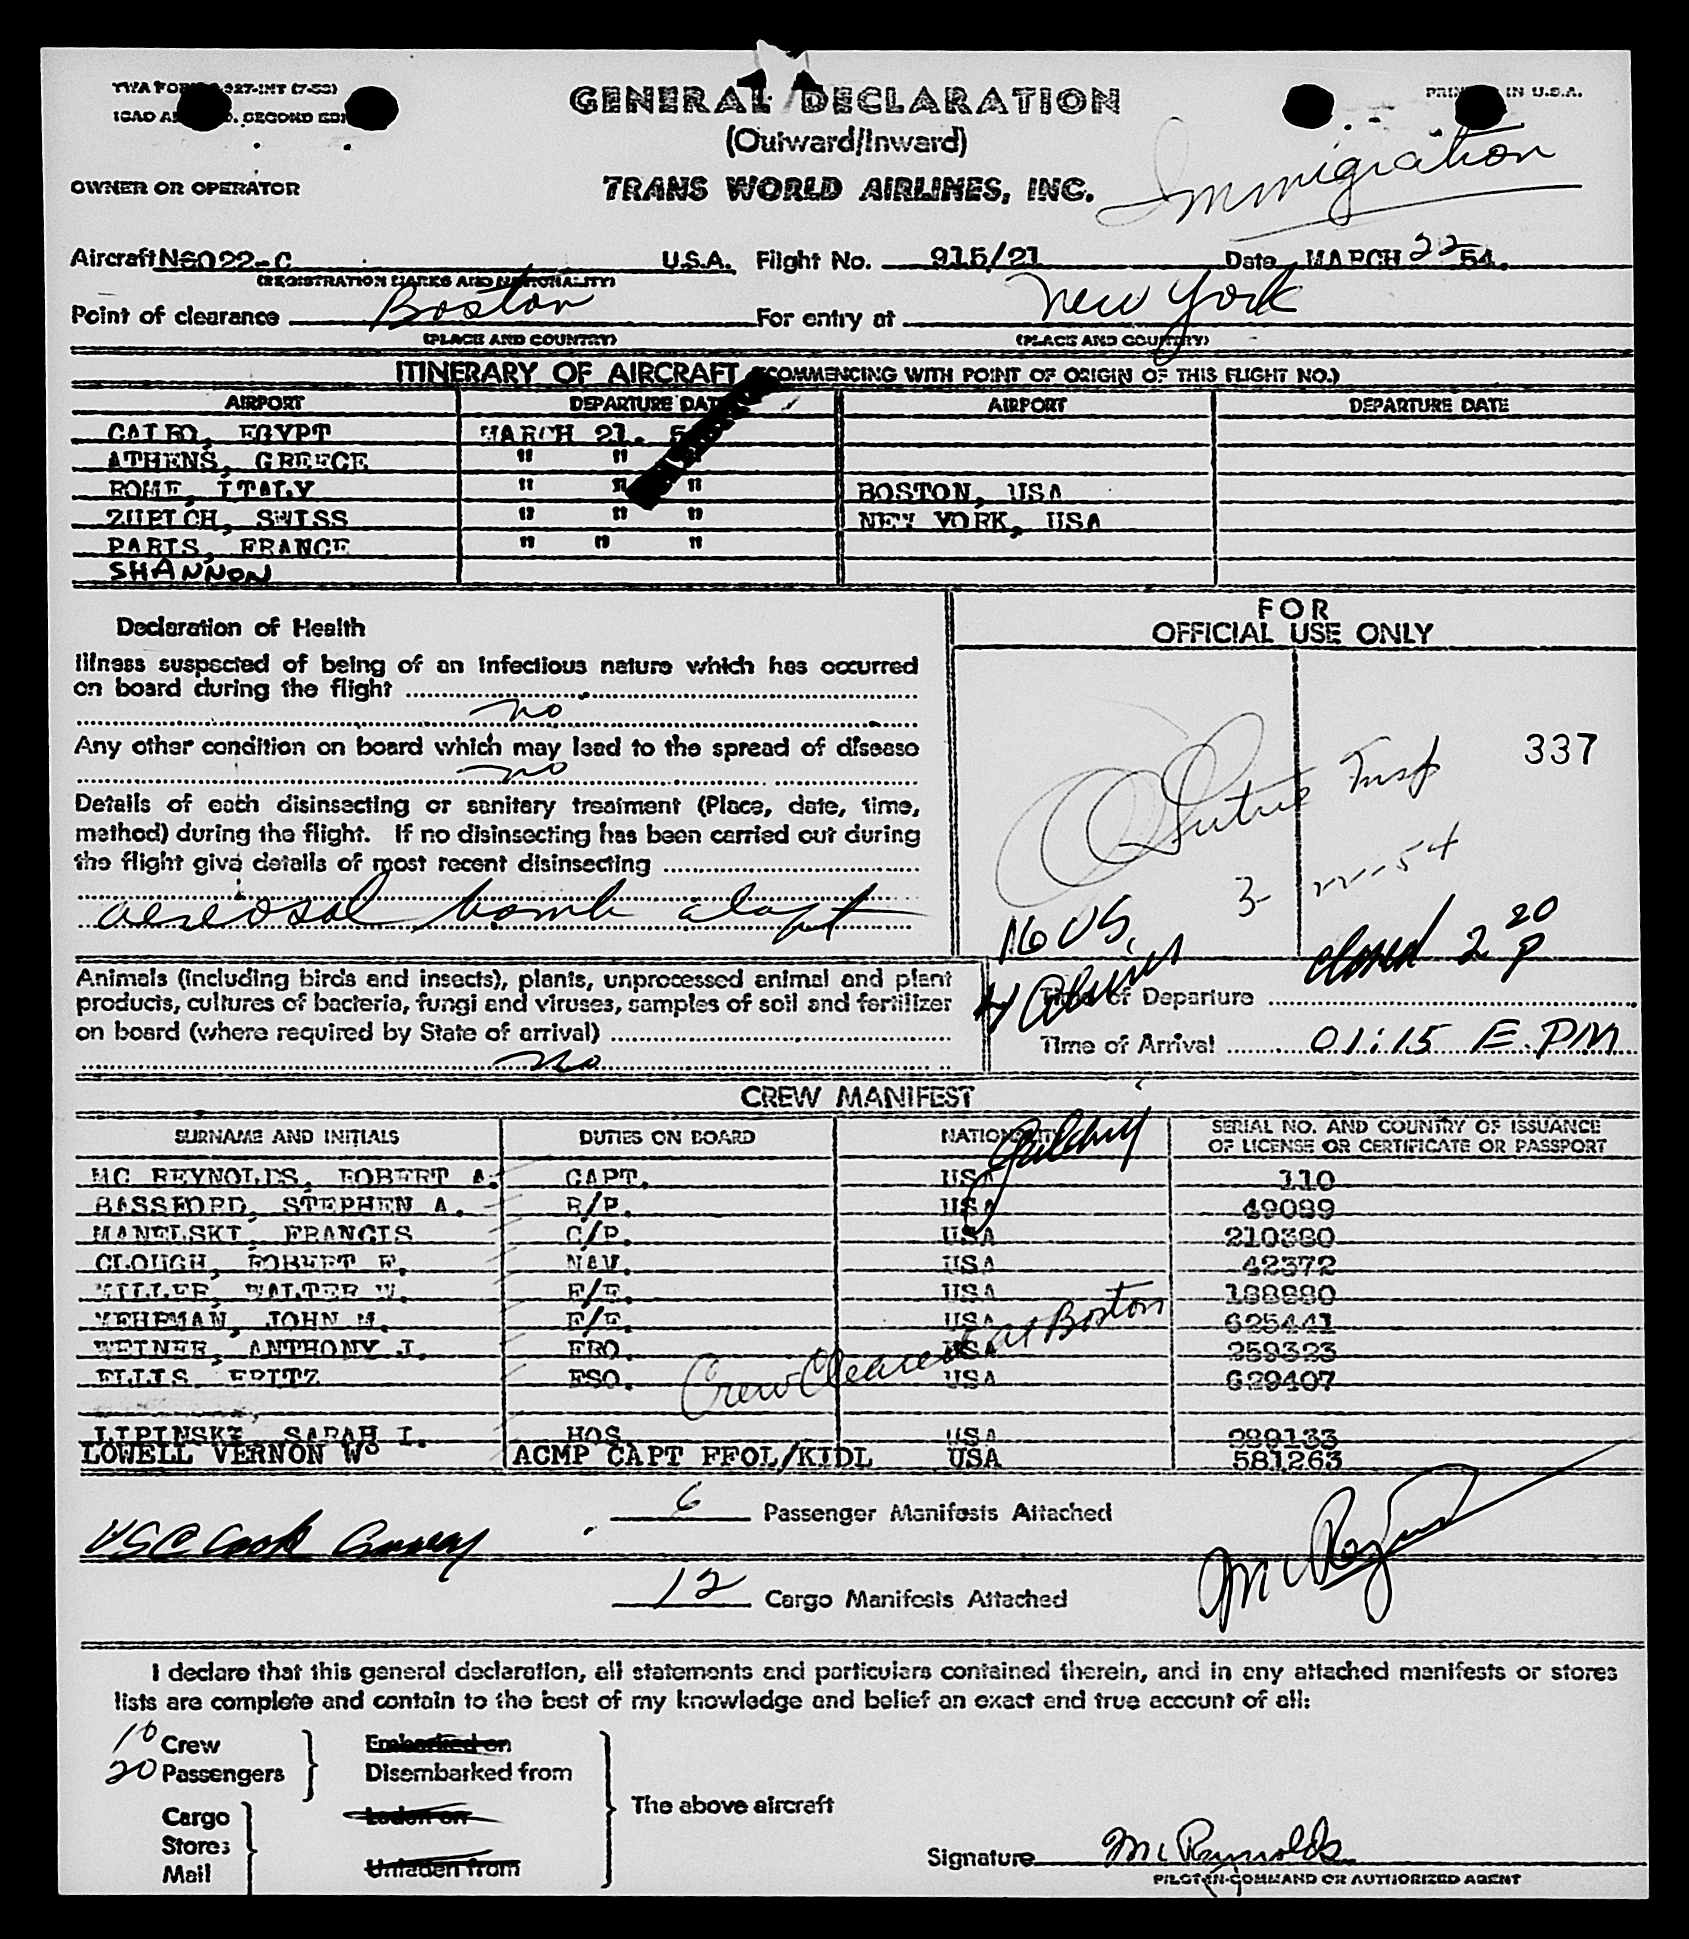 GENERAL DECLARATION
PRINTED IN U.S.A.
(Outward/Inward)
Immigration
OWNER OR OPERATOR TRANS WORLD AIRLINES, INC.
Aircraft N6022-C U.S.A. Flight No. 915/21 Date MARCH 22 54.
(REGISTRATION MARKS AND NATIONALITY)
Point of clearance Boston For entry at New York
(PLACE AND COUNTRY) (PLACE AND COUNTRY)
ITINERARY OF AIRCRAFT (COMMENCING WITH POINT OF ORIGIN OF THIS FLIGHT NO.)
AIRPORT DEPARTURE DATE AIRPORT DEPARTURE DATE
CAIRO, EGYPT MARCH 21. 54
ATHENS, GREECE " " "
ROME, ITALY " " " BOSTON, USA
ZURICH, SWISS " " " NEW YORK, USA
PARIS, FRANCE " " "
SHANNON
FOR
OFFICIAL USE ONLY
Declaration of Health
Illness suspected of being of an infectious nature which has occurred
on board during the flight
no
Any other condition on board which may lead to the spread of disease
no
337
Insp
3- 22-54
Details of each disinsecting or sanitary treatment (Place, date, time,
method) during the flight. If no disinsecting has been carried out during
the flight give details of most recent disinsecting
aereosol bomb
16 US,
4 Aliens
closed 2 20 P
Animals (including birds and insects), plants, unprocessed animal and plant
products, cultures of bacteria, fungi and viruses, samples of soil and fertilizer
on board (where required by State of arrival)
no
Time of Departure
Time of Arrival 01:15 E. PM
CREW MANIFEST
SURNAME AND INITIALS DUTIES ON BOARD NATIONALITY SERIAL NO. AND COUNTRY OF ISSUANCE
OF LICENSE OR CERTIFICATE OR PASSPORT
MC REYNOLDS, ROBERT A. CAPT. USA 110
BASSFORD, STEPHEN A. R/P. USA 49089
MANELSKI, FRANCIS C/P. USA 210380
CLOUGH, ROBERT F. NAV. USA 42372
MILLER, WALTER W. F/E. USA 188880
MEHRMAN, JOHN M. F/E. USA 625441
WEINER, ANTHONY J. FRO. USA 259323
ELLIS FRITZ FSO. USA 629407
Crew Cleared at Boston
LIPINSKI, SARAH I. HOS USA 989133
LOWELL VERNON W ACMP CAPT FFOL/KIDL USA 581263
6 Passenger Manifests Attached
12 Cargo Manifests Attached
McReynolds
I declare that this general declaration, all statements and particulars contained therein, and in any attached manifests or stores
lists are complete and contain to the best of my knowledge and belief an exact and true account of all:
10 Crew Embarked on
20 Passengers Disembarked from
The above aircraft
Cargo Laden on
Stores
Mail Unladen from
Signature McReynolds
PILOT-IN-COMMAND OR AUTHORIZED AGENT